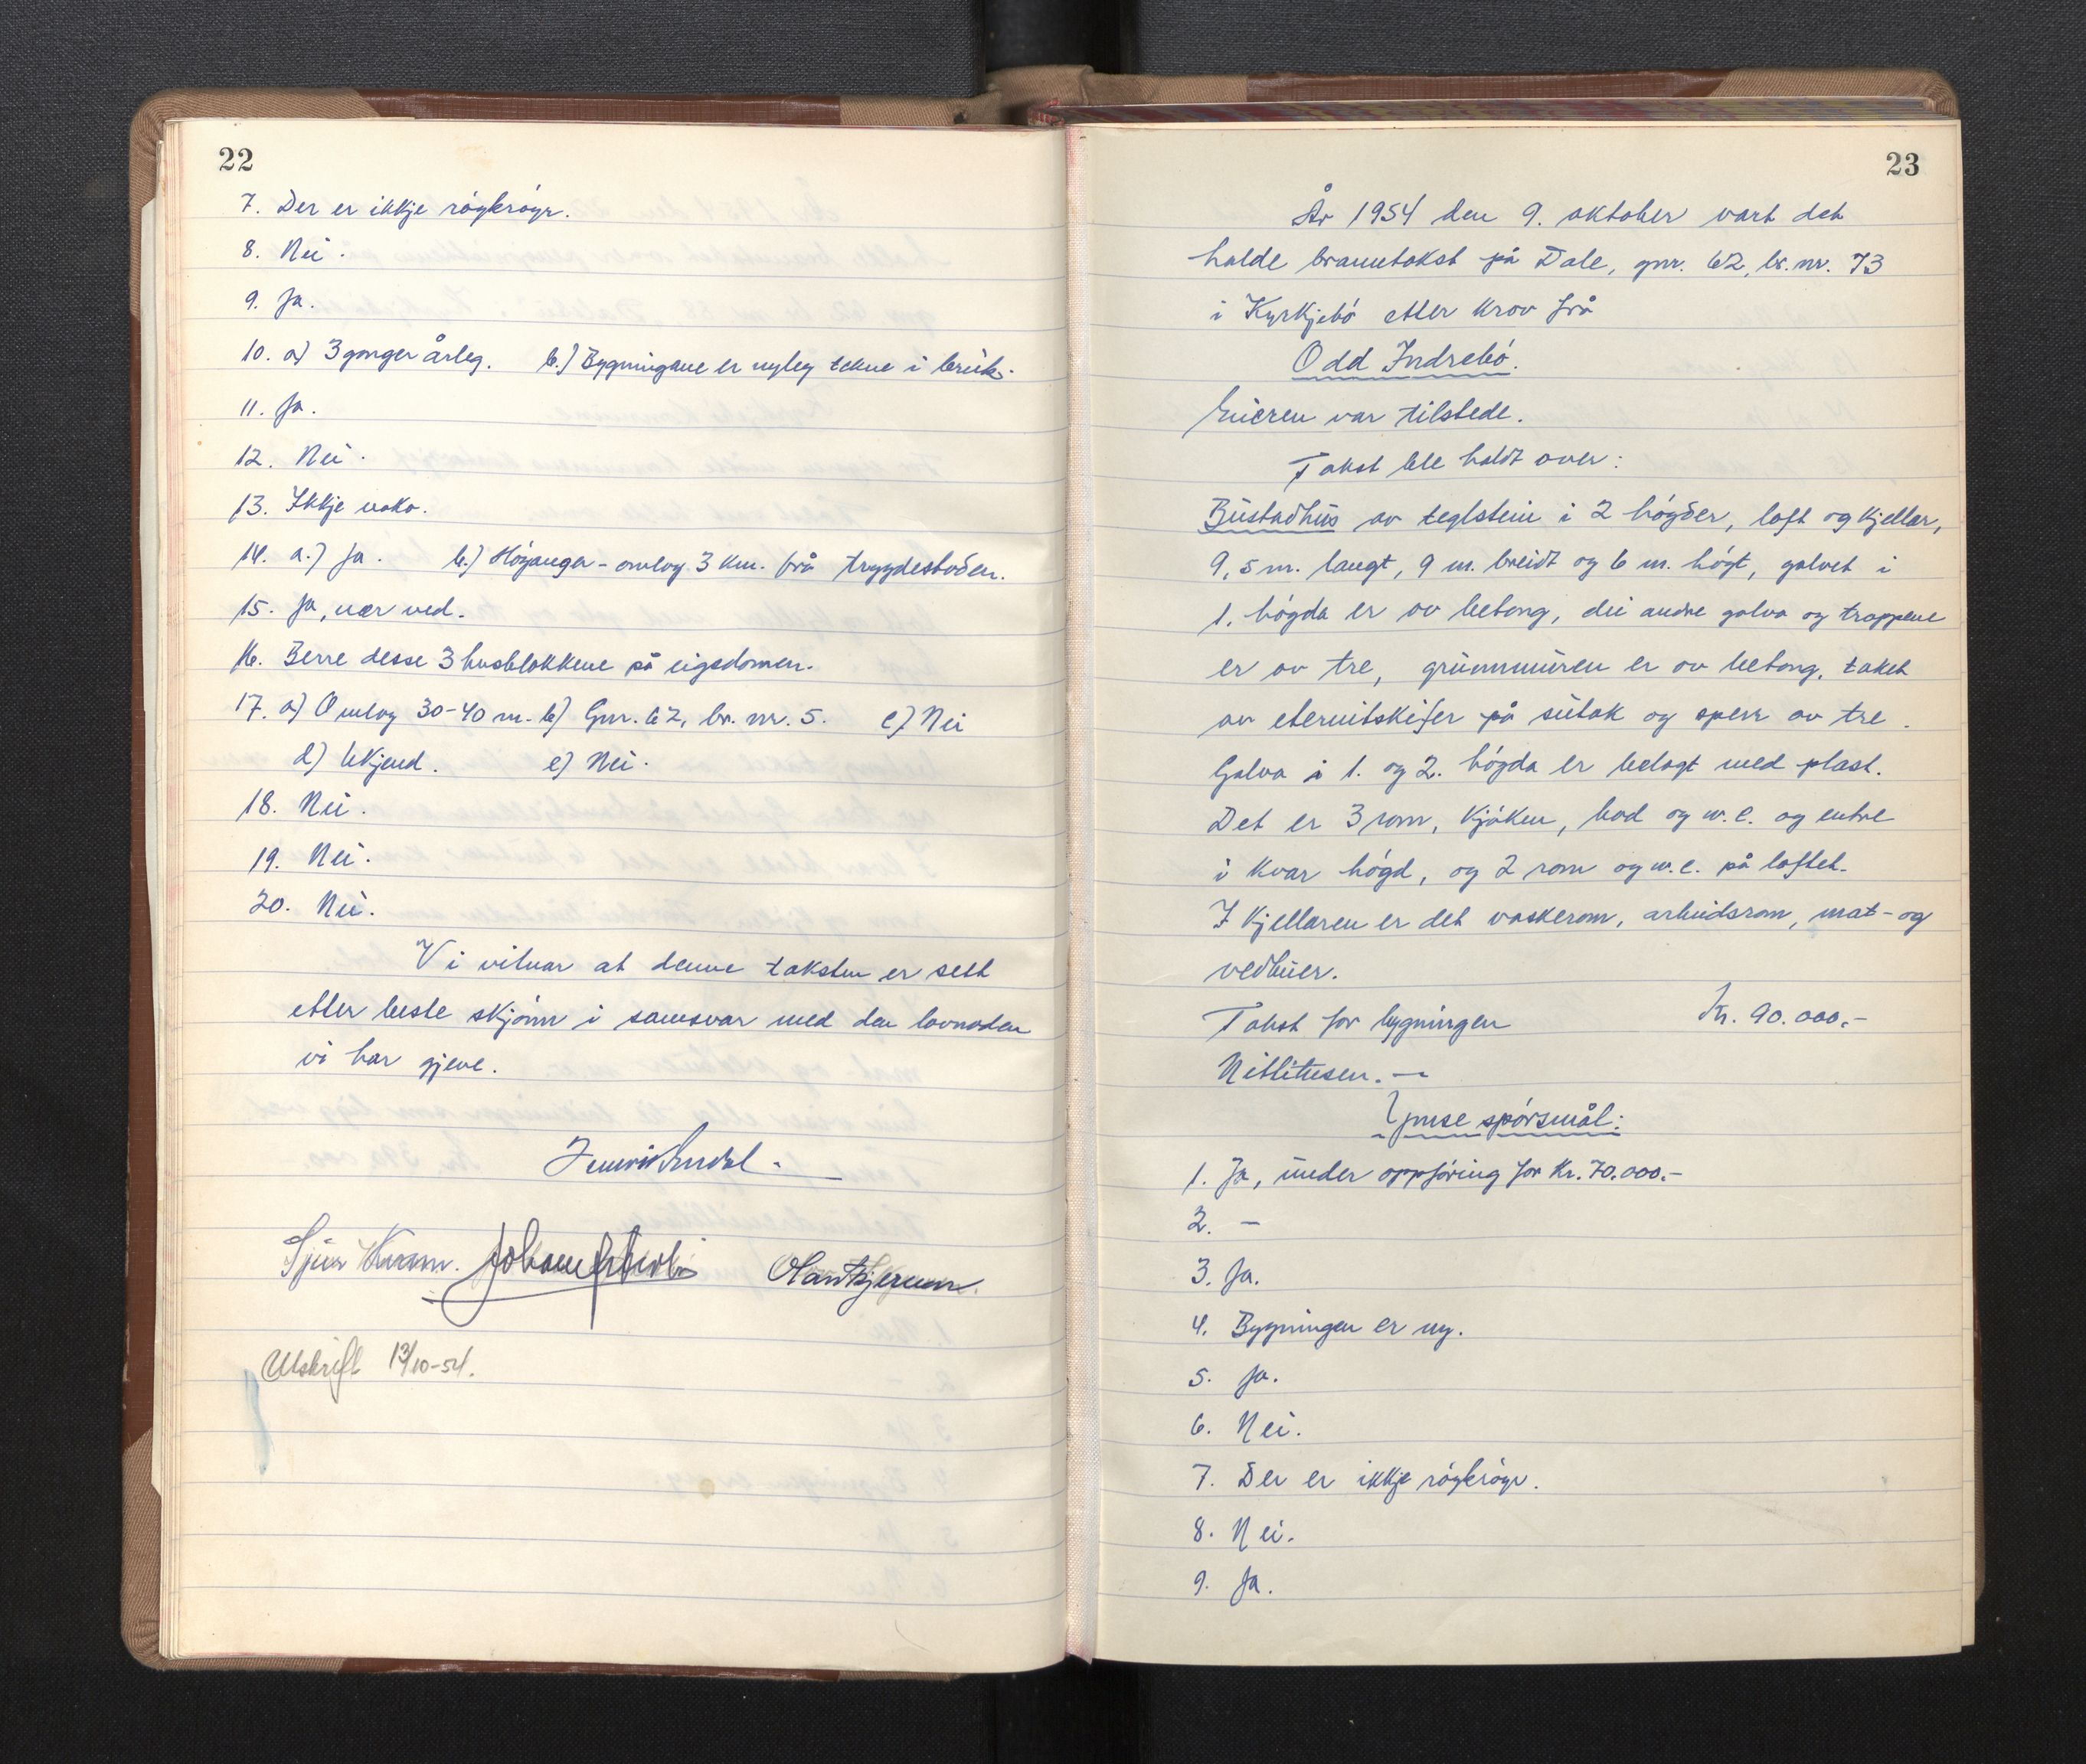 22
7. Der er ikkje røykrøyr.
8. Nei.
9. Ja.
10. a) 3 gonger årleg. b.) Bygningane er nyleg tekne i bruk.
11. Ja.
12. Nei.
13. Ikkje noko.
14. a.) Ja. b.) Høyanger - omlag 3 km. frå trygdestaden.
15. Ja, nær ved.
16. Berre desse 3 husblokkene på eigedomen.
17. a) Omlag 30-40 m. b) Gnr. 62, br. nr. 5. c) Nei
d) Ukjend. e) Nei.
18. Nei.
19. Nei.
20. Nei.
Vi vitnar at denne taksten er sett
etter beste skjønn i samsvar med den lovnaden
vi har gjeve.
Utskrift 13/10-54.
23
År 1954 den 9. oktober vart det
halde branntakst på Dale, gnr. 62, br. nr. 73
i Kyrkjebø etter krav frå
Odd Indrebø.
Eieren var tilstede.
Takst ble haldt over:
Bustadhus av teglstein i 2 høgder, loft og kjellar,
9,5 m. langt, 9 m. breidt og 6 m. høgt, golvet i
1. høgda er av betong, dei andre golva og trappene
er av tre, grunnmuren er av betong, taket
av eternitskifer på sutak og sperr av tre.
Golva i 1. og 2. høgda er belagt med plast.
Det er 3 rom, kjøken, bad og w.c. og entre
i kvar høgd, og 2 rom og w.c. på loftet.
I kjellaren er det vaskerom, arbeidsrom, mat- og
vedbuer.
Takst for bygningen Kr. 90.000,-
Nittitusen. —
Ymse spørsmål:
1. Ja, under oppføring for kr. 70.000.-
2. —
3. Ja.
4. Bygningen er ny.
5. Ja.
6. Nei.
7. Der er ikkje røykrøyr.
8. Nei.
9. Ja.